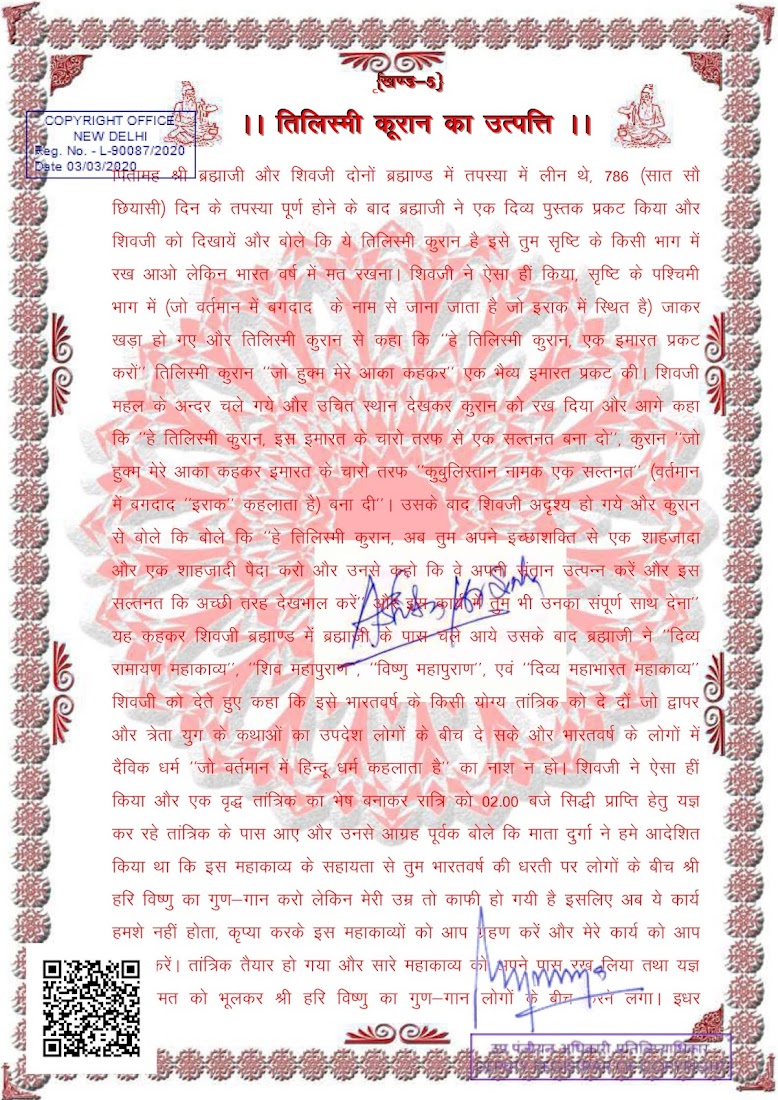 {खण्ड–5}
।। तिलिस्मी कूरान का उत्पत्ति ।।
COPYRIGHT OFFICE
NEW DELHI
Reg. No. - L-90087/2020
Date 03/03/2020
पितामह श्री ब्रह्माजी और शिवजी दोनों ब्रह्माण्ड में तपस्या में लीन थे, 786 (सात सौ
छियासी) दिन के तपस्या पूर्ण होने के बाद ब्रह्माजी ने एक दिव्य पुस्तक प्रकट किया और
शिवजी को दिखायें और बोले कि ये तिलिस्मी कुरान है इसे तुम सृष्टि के किसी भाग में
रख आओ लेकिन भारत वर्ष में मत रखना। शिवजी ने ऐसा हीं किया, सृष्टि के पश्चिमी
भाग में (जो वर्तमान में बगदाद के नाम से जाना जाता है जो इराक में स्थित है) जाकर
खड़ा हो गए और तिलिस्मी कुरान से कहा कि "हे तिलिस्मी कुरान, एक इमारत प्रकट
करों" तिलिस्मी कुरान "जो हुक्म मेरे आका कहकर" एक भैव्य इमारत प्रकट की। शिवजी
महल के अन्दर चले गये और उचित स्थान देखकर कुरान को रख दिया और आगे कहा
कि "हे तिलिस्मी कुरान, इस इमारत के चारो तरफ से एक सल्तनत बना दो", कुरान "जो
हुक्म मेरे आका कहकर इमारत के चारो तरफ "कुबुलिस्तान नामक एक सल्तनत" (वर्तमान
में बगदाद "इराक" कहलाता है) बना दी"। उसके बाद शिवजी अदृश्य हो गये और कुरान
से बोले कि बोले कि "हे तिलिस्मी कुरान, अब तुम अपने इच्छाशक्ति से एक शाहजादा
और एक शाहजादी पैदा करो और उनसे कहो कि वे अपनी संतान उत्पन्न करें और इस
सल्तनत कि अच्छी तरह देखभाल करें" और इस कार्य में तुम भी उनका संपूर्ण साथ देना"
यह कहकर शिवजी ब्रह्माण्ड में ब्रह्माजी के पास चले आये उसके बाद ब्रह्माजी ने "दिव्य
रामायण महाकाव्य", "शिव महापुराण", "विष्णु महापुराण", एवं "दिव्य महाभारत महाकाव्य"
शिवजी को देते हुए कहा कि इसे भारतवर्ष के किसी योग्य तांत्रिक को दे दों जो द्वापर
और त्रेता युग के कथाओं का उपदेश लोगों के बीच दे सके और भारतवर्ष के लोगों में
दैविक धर्म "जो वर्तमान में हिन्दू धर्म कहलाता है" का नाश न हो। शिवजी ने ऐसा हीं
किया और एक वृद्ध तांत्रिक का भेष बनाकर रात्रि को 02.00 बजे सिद्धी प्राप्ति हेतु यज्ञ
कर रहे तांत्रिक के पास आए और उनसे आग्रह पूर्वक बोले कि माता दुर्गा ने हमे आदेशित
किया था कि इस महाकाव्य के सहायता से तुम भारतवर्ष की धरती पर लोगों के बीच श्री
हरि विष्णु का गुण–गान करो लेकिन मेरी उम्र तो काफी हो गयी है इसलिए अब ये कार्य
हमशे नहीं होता, कृप्या करके इस महाकाव्यों को आप ग्रहण करें और मेरे कार्य को आप
करें। तांत्रिक तैयार हो गया और सारे महाकाव्य को अपने पास रख लिया तथा यज्ञ
मत को भूलकर श्री हरि विष्णु का गुण–गान लोगों के बीच करने लगा। इधर
उप पंजीयन अधिकारी प्रतिलिप्याधिकार
DEPUTY REGISTRAR OF COPYRIGHT